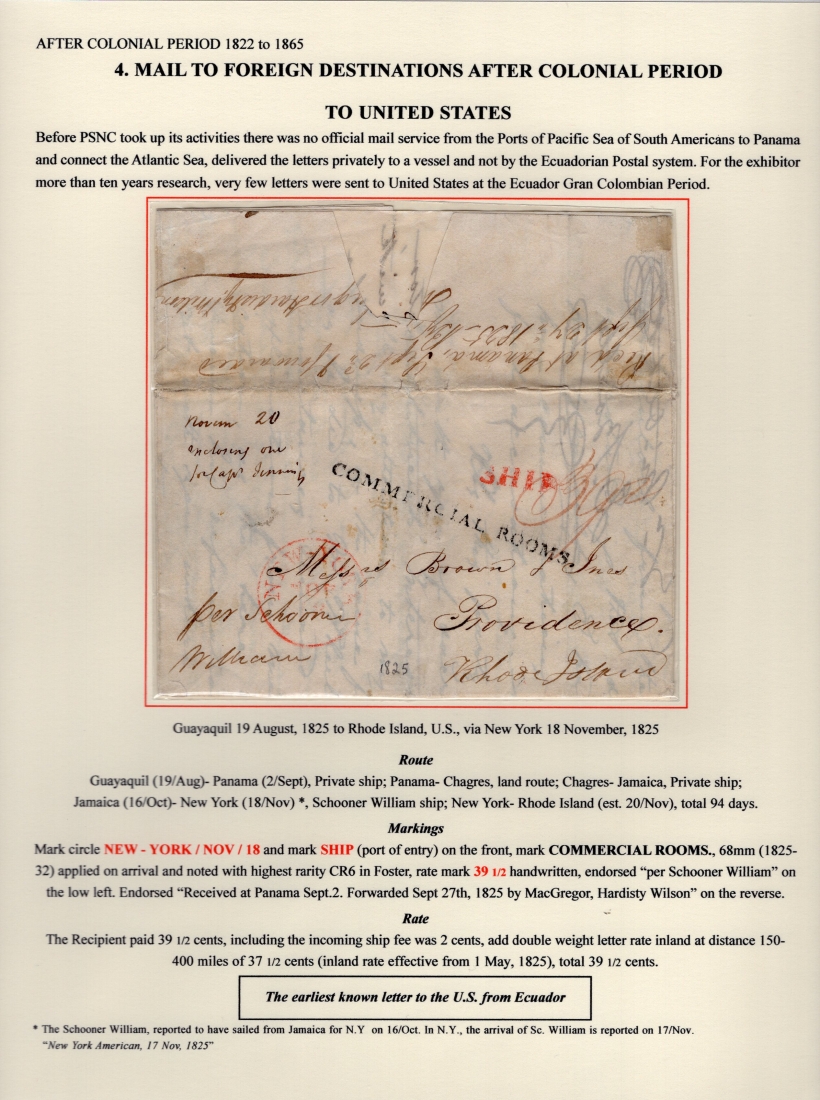 AFTER COLONIAL PERIOD 1822 to 1865
4. MAIL TO FOREIGN DESTINATIONS AFTER COLONIAL PERIOD
TO UNITED STATES
Before PSNC took up its activities there was no official mail service from the Ports of Pacific Sea of South Americans to Panama
and connect the Atlantic Sea, delivered the letters privately to a vessel and not by the Ecuadorian Postal system. For the exhibitor
more than ten years research, very few letters were sent to United States at the Ecuador Gran Colombian Period.
Recd at Panama, Sept 2d & forwarded
Sept 27th 1825
Hardisty Wilson
Novem 20
enclosing one
for Capt
COMMERCIAL ROOMS.
SHIP
NEW-YORK
Messrs Brown & Ives
per Schooner
Providence.
William
1825
Rhode Island
Guayaquil 19 August, 1825 to Rhode Island, U.S., via New York 18 November, 1825
Route
Guayaquil (19/Aug)- Panama (2/Sept), Private ship; Panama- Chagres, land route; Chagres- Jamaica, Private ship;
Jamaica (16/Oct)- New York (18/Nov) *, Schooner William ship; New York- Rhode Island (est. 20/Nov), total 94 days.
Markings
Mark circle NEW - YORK / NOV / 18 and mark SHIP (port of entry) on the front, mark COMMERCIAL ROOMS., 68mm (1825-
32) applied on arrival and noted with highest rarity CR6 in Foster, rate mark 39 1/2 handwritten, endorsed “per Schooner William” on
the low left. Endorsed “Received at Panama Sept.2. Forwarded Sept 27th, 1825 by MacGregor, Hardisty Wilson” on the reverse.
Rate
The Recipient paid 39 1/2 cents, including the incoming ship fee was 2 cents, add double weight letter rate inland at distance 150-
400 miles of 37 1/2 cents (inland rate effective from 1 May, 1825), total 39 1/2 cents.
The earliest known letter to the U.S. from Ecuador
* The Schooner William, reported to have sailed from Jamaica for N.Y on 16/Oct. In N.Y., the arrival of Sc. William is reported on 17/Nov.
“New York American, 17 Nov, 1825”